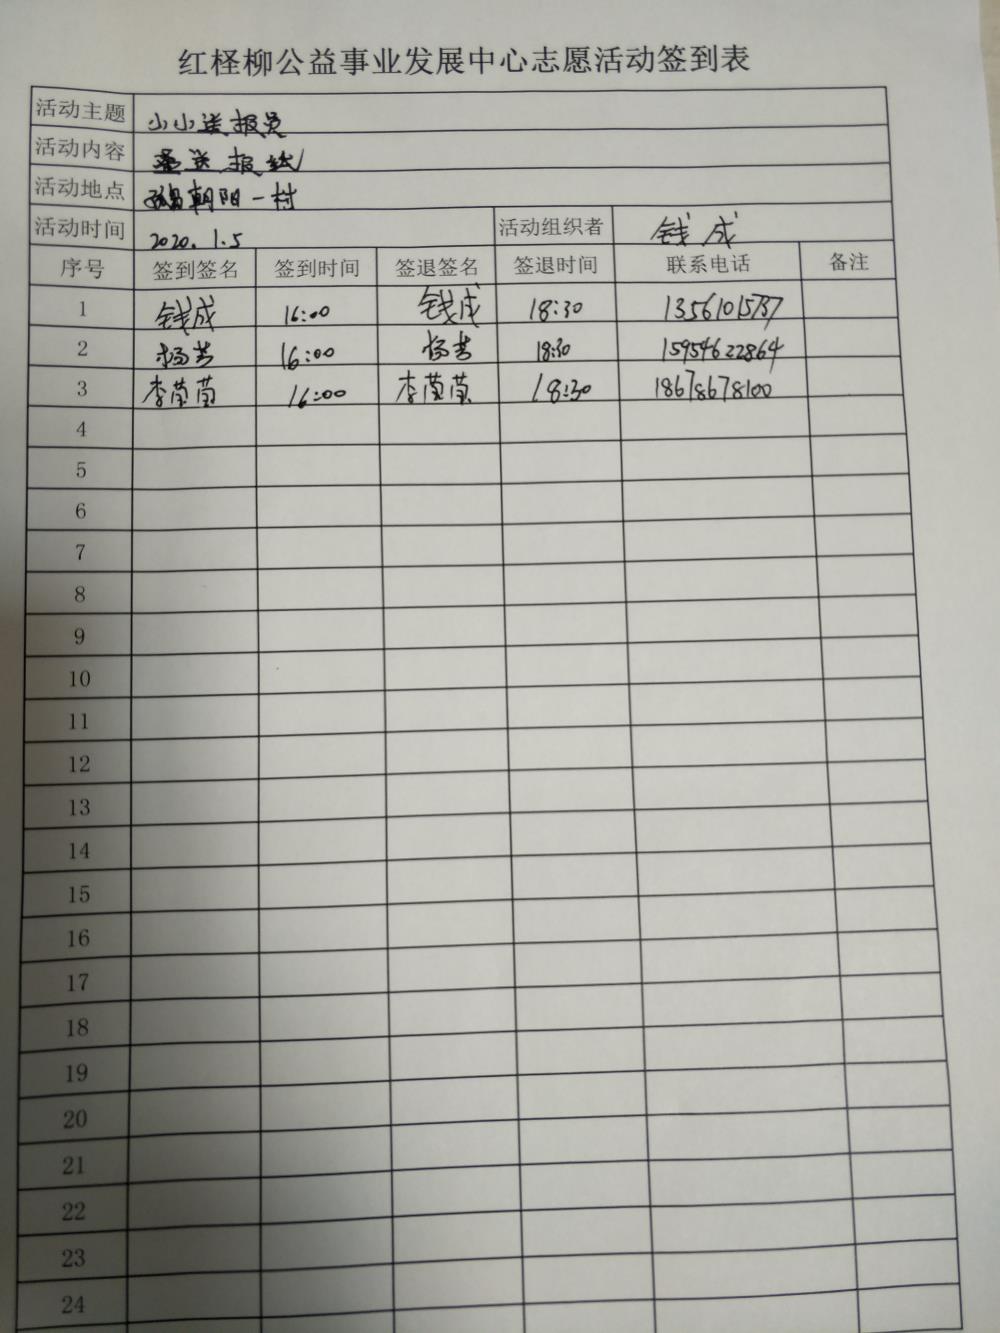 红柽柳公益事业发展中心志愿活动签到表
活动主题 小小送报员
活动内容 送报纸
活动地点 朝阳一村
活动时间 2020.1.5 活动组织者 钱成
序号 签到签名 签到时间 签退签名 签退时间 联系电话 备注
1 钱成 16:00 钱成 18:30 13561015737
2 杨芳 16:00 杨芳 18:30 15954622864
3 李莹莹 16:00 李莹莹 18:30 18678678100
4
5
6
7
8
9
10
11
12
13
14
15
16
17
18
19
20
21
22
23
24